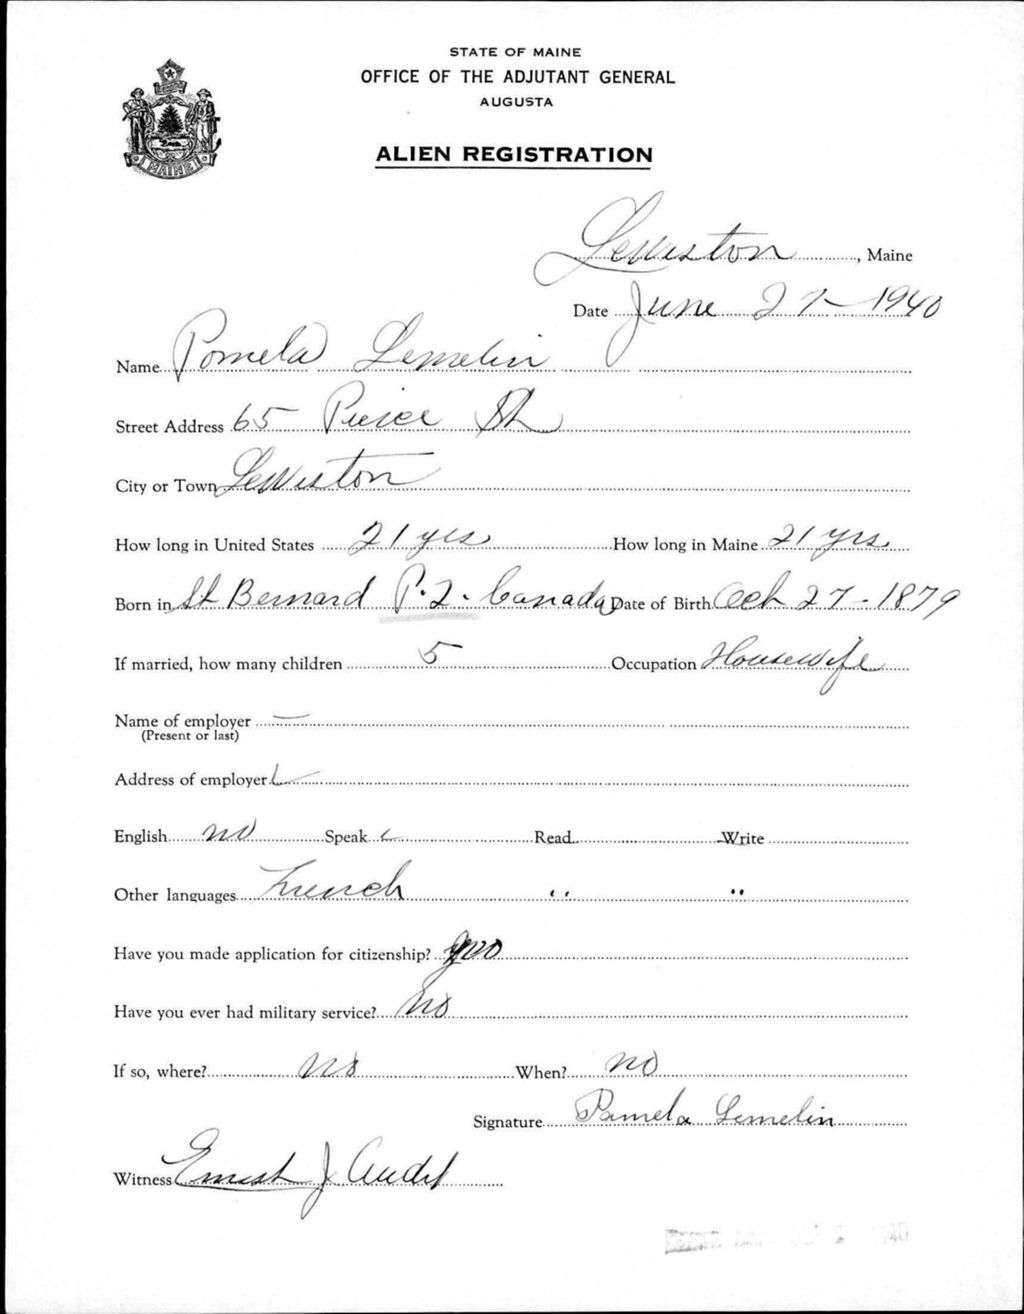 STATE OF MAINE
OFFICE OF THE ADJUTANT GENERAL
AUGUSTA
ALIEN REGISTRATION
MAINE
Lewiston, Maine
Date June 27-1940
Name Pomela Lemelin
Street Address 65 Pierce St
City or Town Lewiston
How long in United States 21 yrs How long in Maine 21 yrs
Born in St Bernard P.Q. Canada Date of Birth Oct 27-1879
If married, how many children 5 Occupation Housewife
Name of employer —
(Present or last)
Address of employer
English no Speak Read Write
Other languages French " "
Have you made application for citizenship? no
Have you ever had military service? no
If so, where? no When? no
Signature Pamela Lemelin
Witness Ernest J Audet